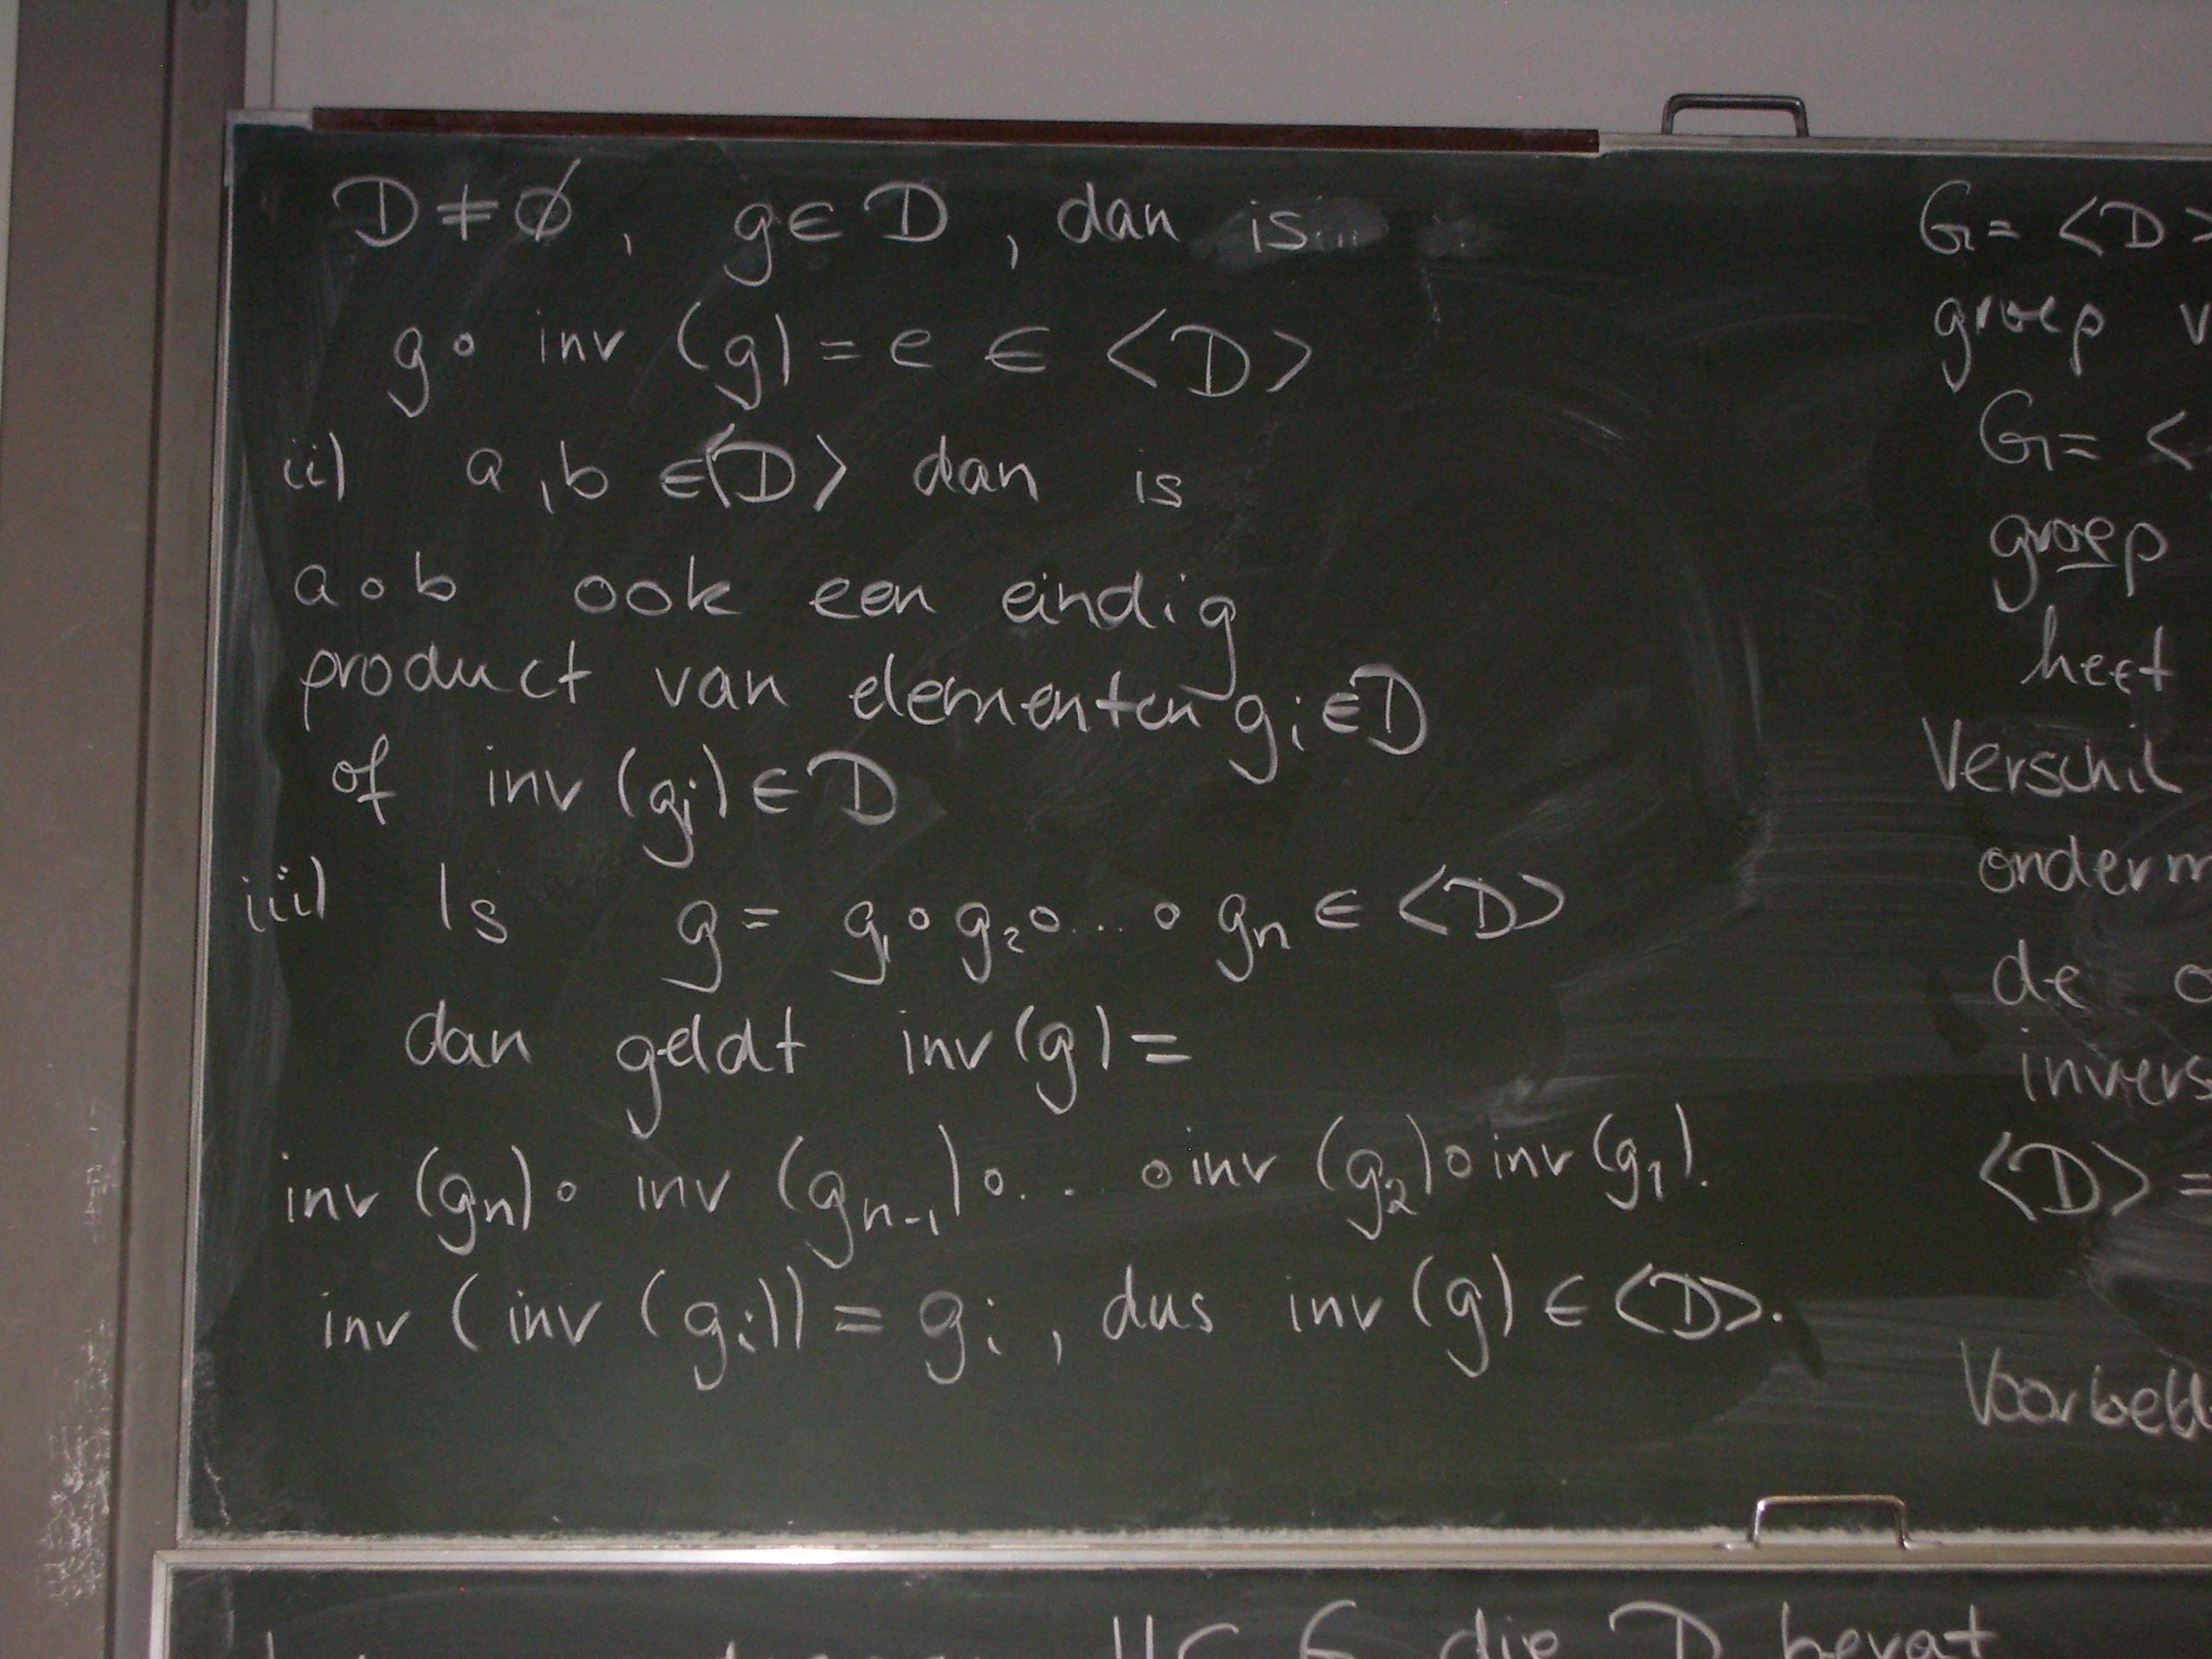 D ≠ ∅, g ∈ D, dan is
g ∘ inv (g) = e ∈ <D>
ii) a, b ∈ <D> dan is
a ∘ b ook een eindig
product van elementen gi ∈ D
of inv (gj) ∈ D
iii) Is g = g1 ∘ g2 ∘ ... ∘ gn ∈ <D>
dan geldt inv (g) =
inv (gn) ∘ inv (gn-1) ∘ .. ∘ inv (g2) ∘ inv (g1).
inv (inv (gi)) = gi, dus inv (g) ∈ <D>.
G = <D>
groep v
G = <
groep
heet
Verschil
onderm
de o
invers
<D> =
Voorbeeld
G die D bevat